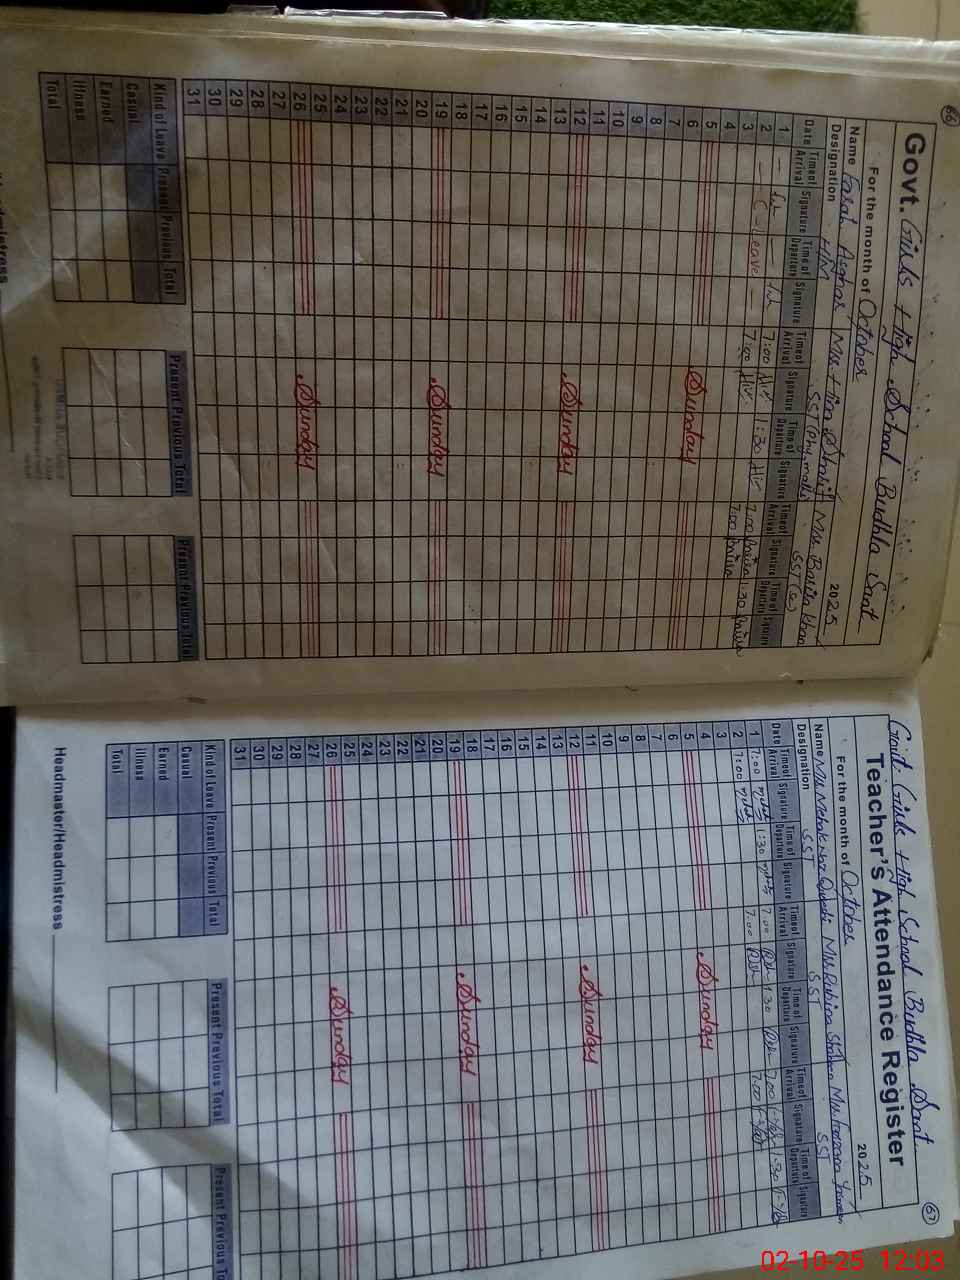 66
Govt. Girls High School Budhla Sant
For the month of October 2025
Name Farah Asghar Mrs. Hira Sharif Mrs. Basila Khan
Designation H/M SST (Phy, math) SST (Sc)
Date Time of Arrival Signature Time of Departure Signature Time of Arrival Signature Time of Departure Signature Time of Arrival Signature Time of Departure Signature
1 7:00 1:30 7:00 1:30
2 Leave 7:00 7:00
3
4
5 Sunday
6
7
8
9
10
11
12 Sunday
13
14
15
16
17
18
19 Sunday
20
21
22
23
24
25
26 Sunday
27
28
29
30
31
Kind of Leave Present Previous Total Present Previous Total Present Previous Total
Casual
Earned
Illness
Total
67
Govt. Girls High School Budhla Sant
Teacher's Attendance Register
For the month of October 2025
Name Mrs. Mehak Naz Qureshi Mrs. Rubina Shaheen Mrs. Farzana Yasmeen
Designation SST SST SST
Date Time of Arrival Signature Time of Departure Signature Time of Arrival Signature Time of Departure Signature Time of Arrival Signature Time of Departure Signature
1 7:00 1:30 7:00 1:30 7:00 1:30
2 7:00 7:00 7:00
3
4
5 Sunday
6
7
8
9
10
11
12 Sunday
13
14
15
16
17
18
19 Sunday
20
21
22
23
24
25
26 Sunday
27
28
29
30
31
Kind of Leave Present Previous Total Present Previous Total Present Previous
Casual
Earned
Illness
Total
Headmaster/Headmistress
02-10-25 12:03